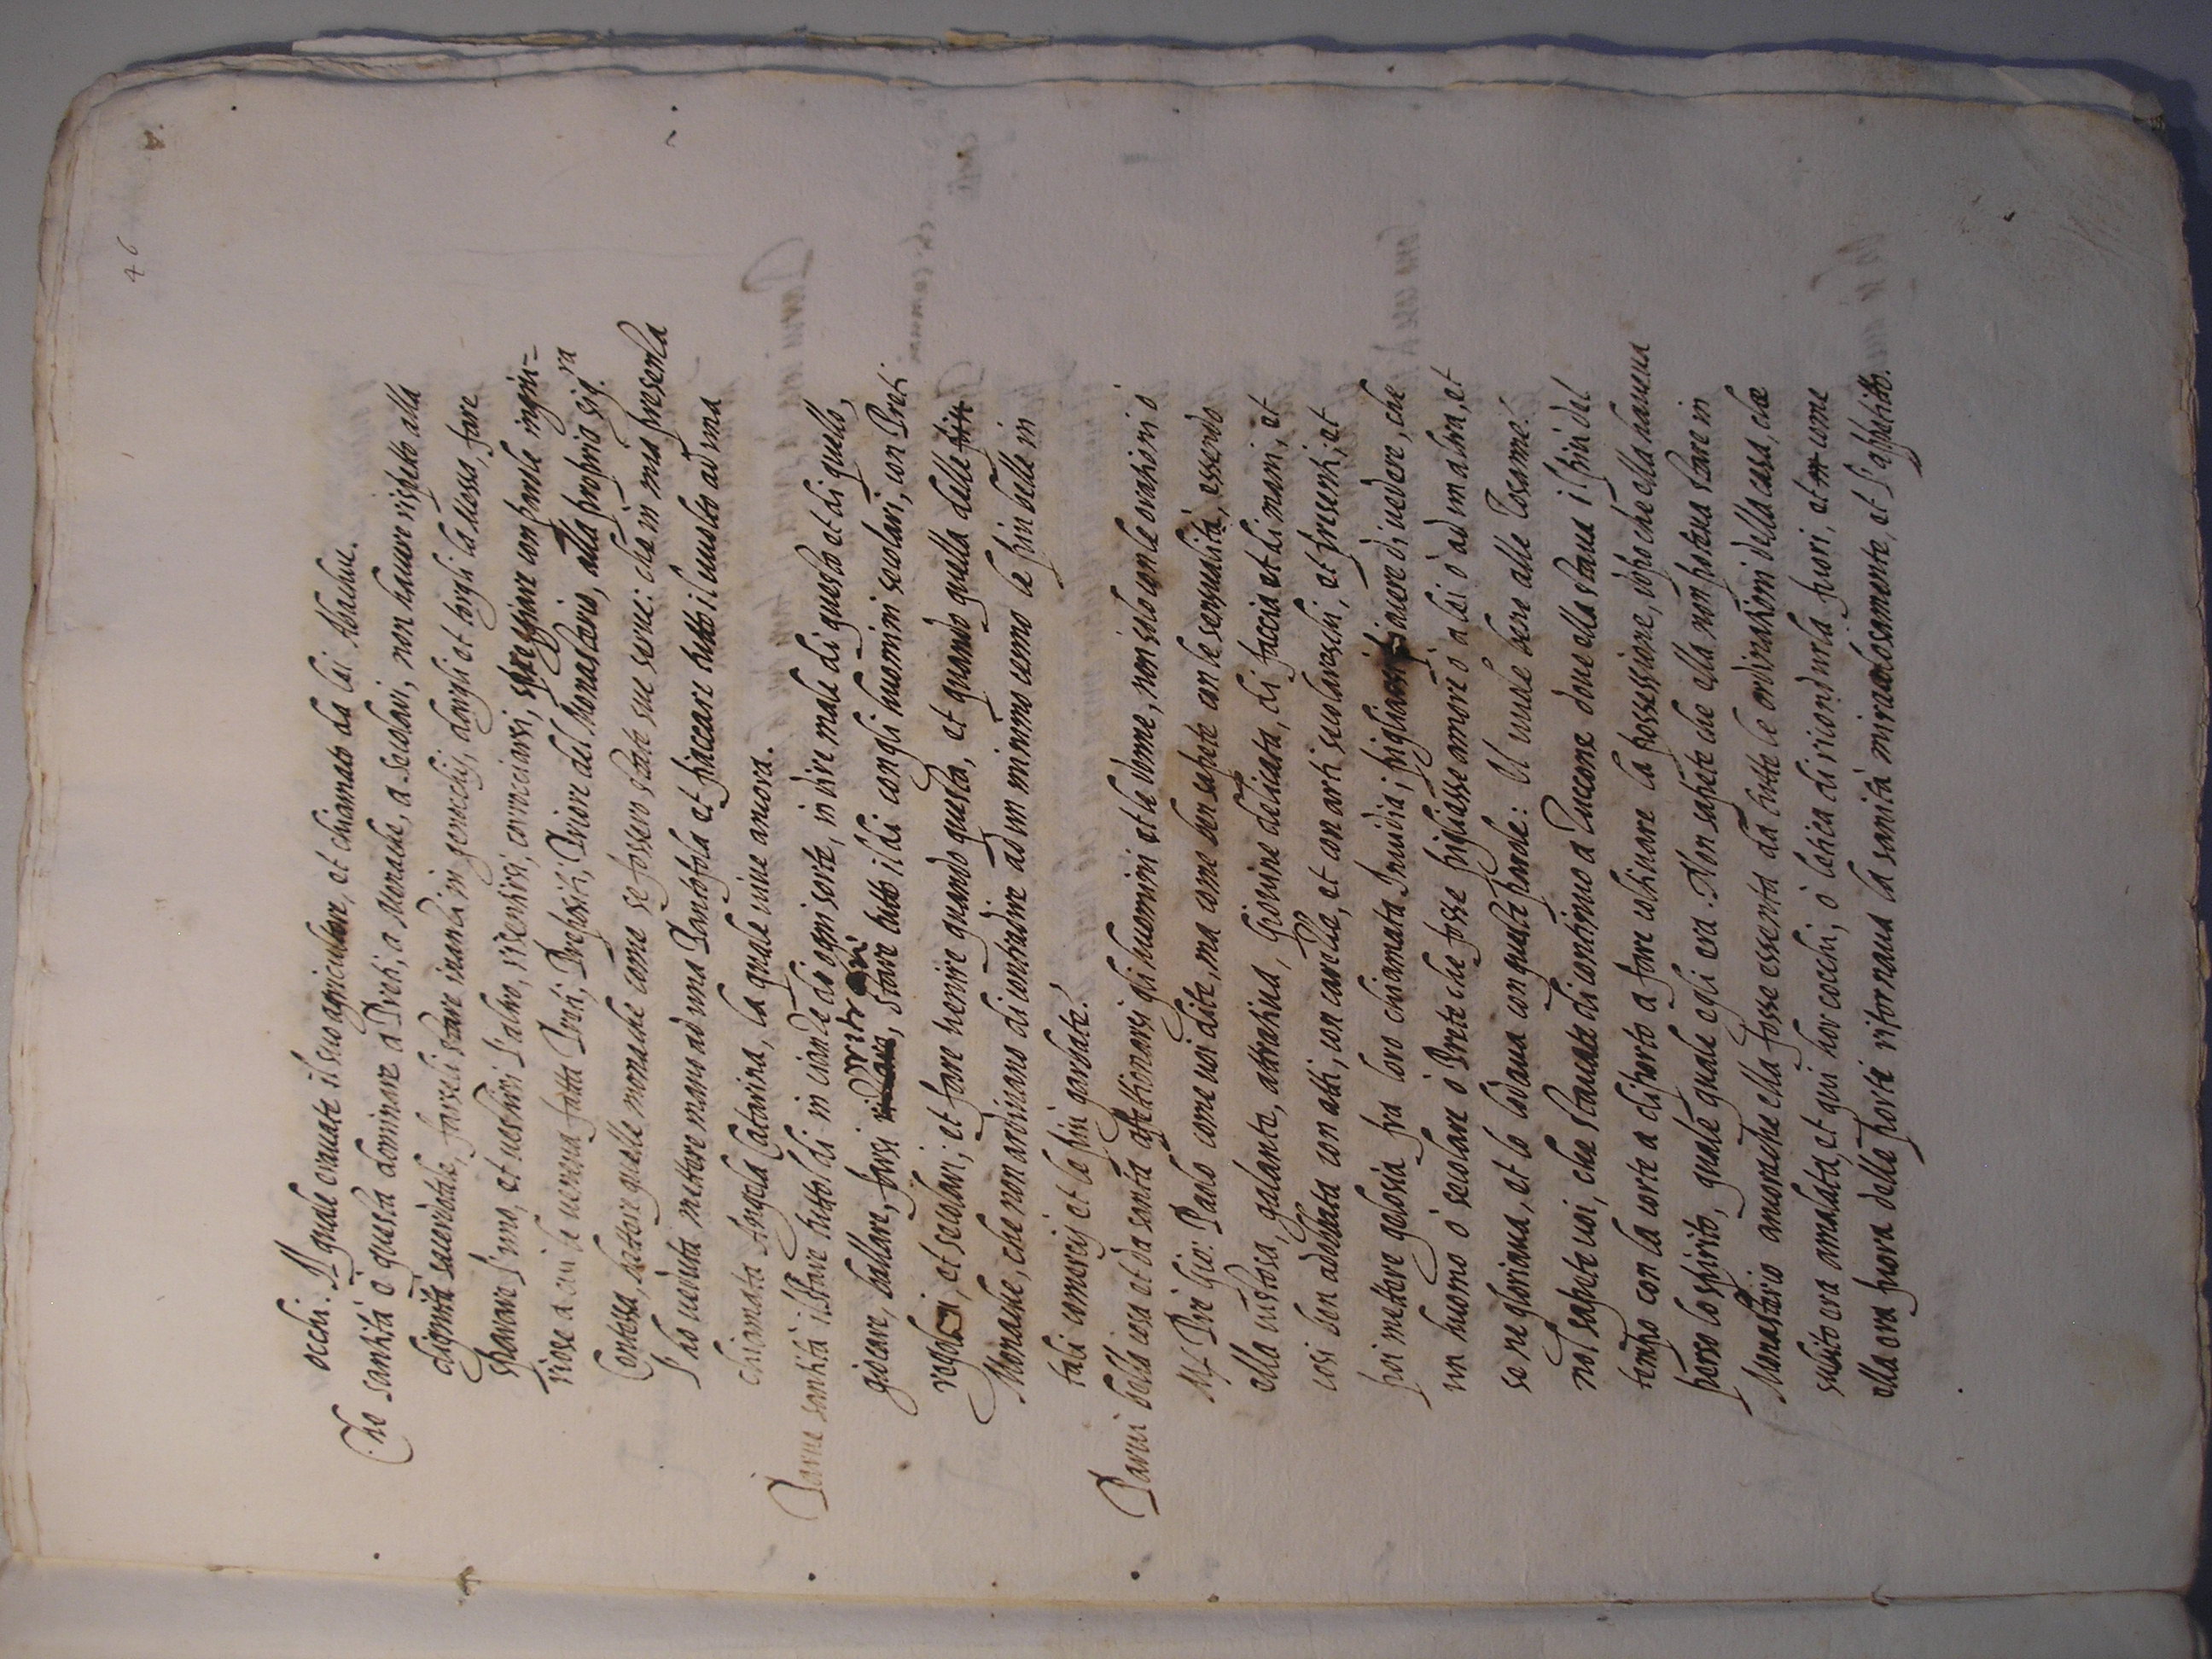 46
occhi. Il quale erauate il suo agricultore, et chiamato da lei Abachuc.
Che santità è questa dominare a Preti, a Monache, a secolari, non hauere rispetto alla
dignità sacerdotale, farseli stare inanti in genocchij, dargli et torgli la stessa, fare
spouare l'uno, et uestire l'altro, risentirsi, corrocciarsi, spregiare con parole ingiu=
riose a cui le ueneua fatta Preti, Prepositi, Priore del Monasterio, alla propria sig.ra
Contessa, battere quelle monache come se fossero state sue serue: che in mia presenza
l'ho ueduta mettere mano ad una Pantofola et fraccare tutto il uolto ad una
chiamata Angela Catarina, la quale uiue ancora.
Parue santità il stare tutto dì in ciancie di ogni sorte, in dire male di questo et di quello,
giocare, ballare, farsi, stare tutto il dì con gli huomini secolari, con Preti
regolari, et secolari, et fare uenire quando questa, et quando quella delle
Monache, che non ardiuano di contradire ad un minimo cenno le più belle in
tali comercij et le più garbate?
Parui bella cosa et da santa affettionarsi gli huomini et le donne, non solo con le orationi o
M. Pre Gio: Paulo come uoi dite, ma come ben sapete con le sensualità, essendo
ella uistosa, galante, attratiua, giouine delicata, di faccia et di mani, et
così ben adobbata con atti, con carezze, et con arti secolareschi, et presenti, et
poi mettere gelosia fra loro chiamata Inuidia, pigliarsi piacere di uedere, che
un huomo ò secolare ò Prete che fosse pigliasse amore ò a lei ò ad un'altra, et
se ne gloriaua, et lo lodaua con queste parole: Il uuole bene alle Tosanne?
nol sapete uoi, che stauate di continuo a Zuccone doue ella staua i più del
tempo con la corte a diporto a fare coltiuare la possessione, dopo che ella haueua
perso lo spirito, quale quale egli era. Non sapete che ella non poteua stare in
Monasterio ancorache ella fosse essenta da tutte le ordinationi della casa, che
subito era amalata, et qui hor cocchi, ò letica di riconduruela fuori, et come
ella era fuora delle porte ritornaua la sanità miracolosamente, et l'appetitto.